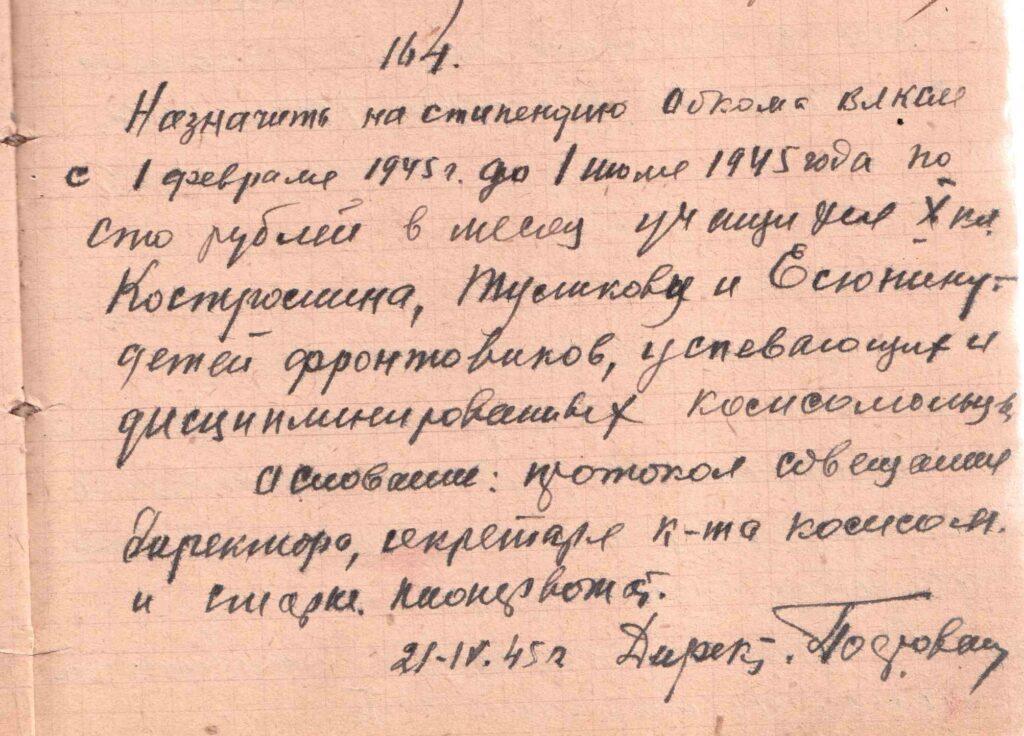 164.
Назначить на стипендию Обкома ВЛКСМ
с 1 февраля 1945г. до 1 июля 1945 года по
сто рублей в месяц учащихся X кл.
Костромина, Тушкову и Есюнину-
детей фронтовиков, успевающих и
дисциплинированных комсомольцев
Основание: протокол совещания
директора, секретаря к-та комсом.
и старш. пионервожат.
21-IV.45г Директ.